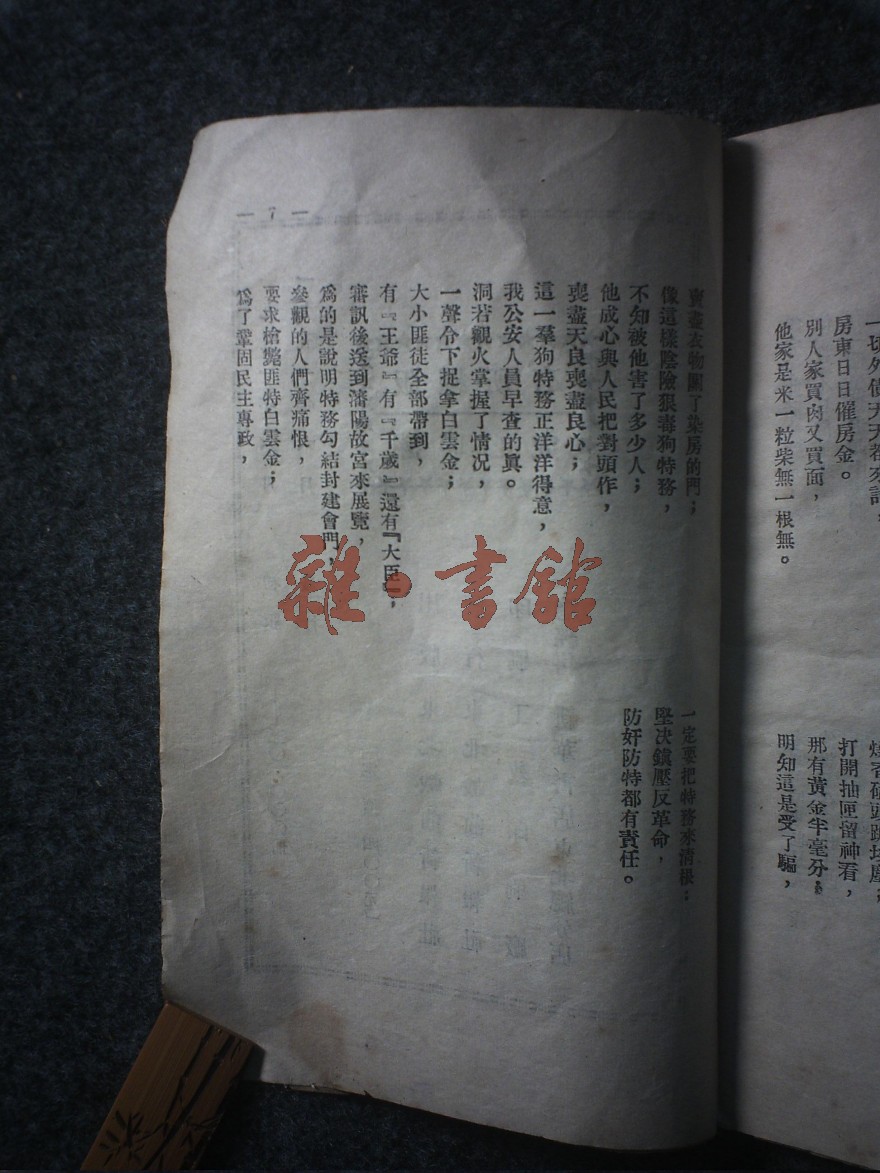 房東日日催房金。
別人家買肉又買面，
他家是米一粒柴無一根無。
打開抽匣留神看，
那有黃金半毫分；
明知這是受了騙，
— 7 —
賣盡衣物關了染房的門；
像這樣陰險狠毒狗特務，
不知被他害了多少人；
他成心與人民把對頭作，
喪盡天良喪盡良心；
這一羣狗特務正洋洋得意，
我公安人員早查的眞。
洞若觀火掌握了情况，
一聲令下捉拿白雲金；
大小匪徒全部帶到，
有『王爺』有『千歲』還有『大臣』；
審訊後送到瀋陽故宮來展覽，
爲的是說明特務勾結封建會門，
參觀的人們齊痛恨，
要求槍斃匪特白雲金；
爲了鞏固民主專政，
一定要把特務來清根；
堅决鎭壓反革命，
防奸防特都有責任。
雜·書館